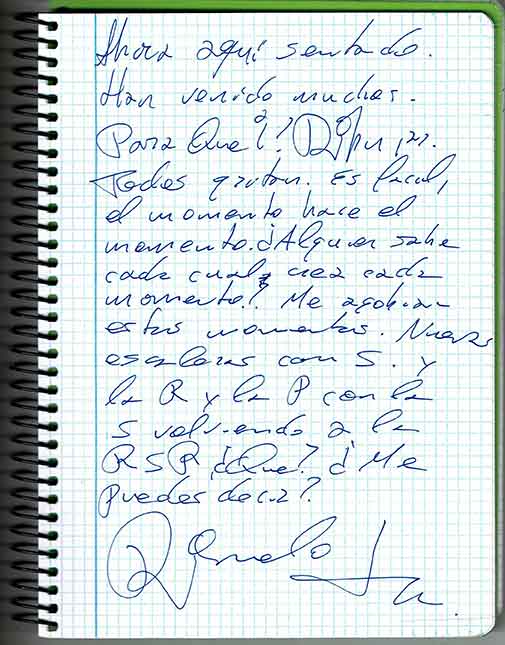 Ahora aquí sentado.
Han venido muchas.
Para Que?
Todos gritan. Es facil,
el momento hace el
momento. ¿Alguien sabe
cada cual crea cada
momento? Me agobian
estos momentos. Nuevas
escaleras con S. y
la R y la P con la
S volviendo a la
RSP ¿Que? ¿Me
puedes decir?